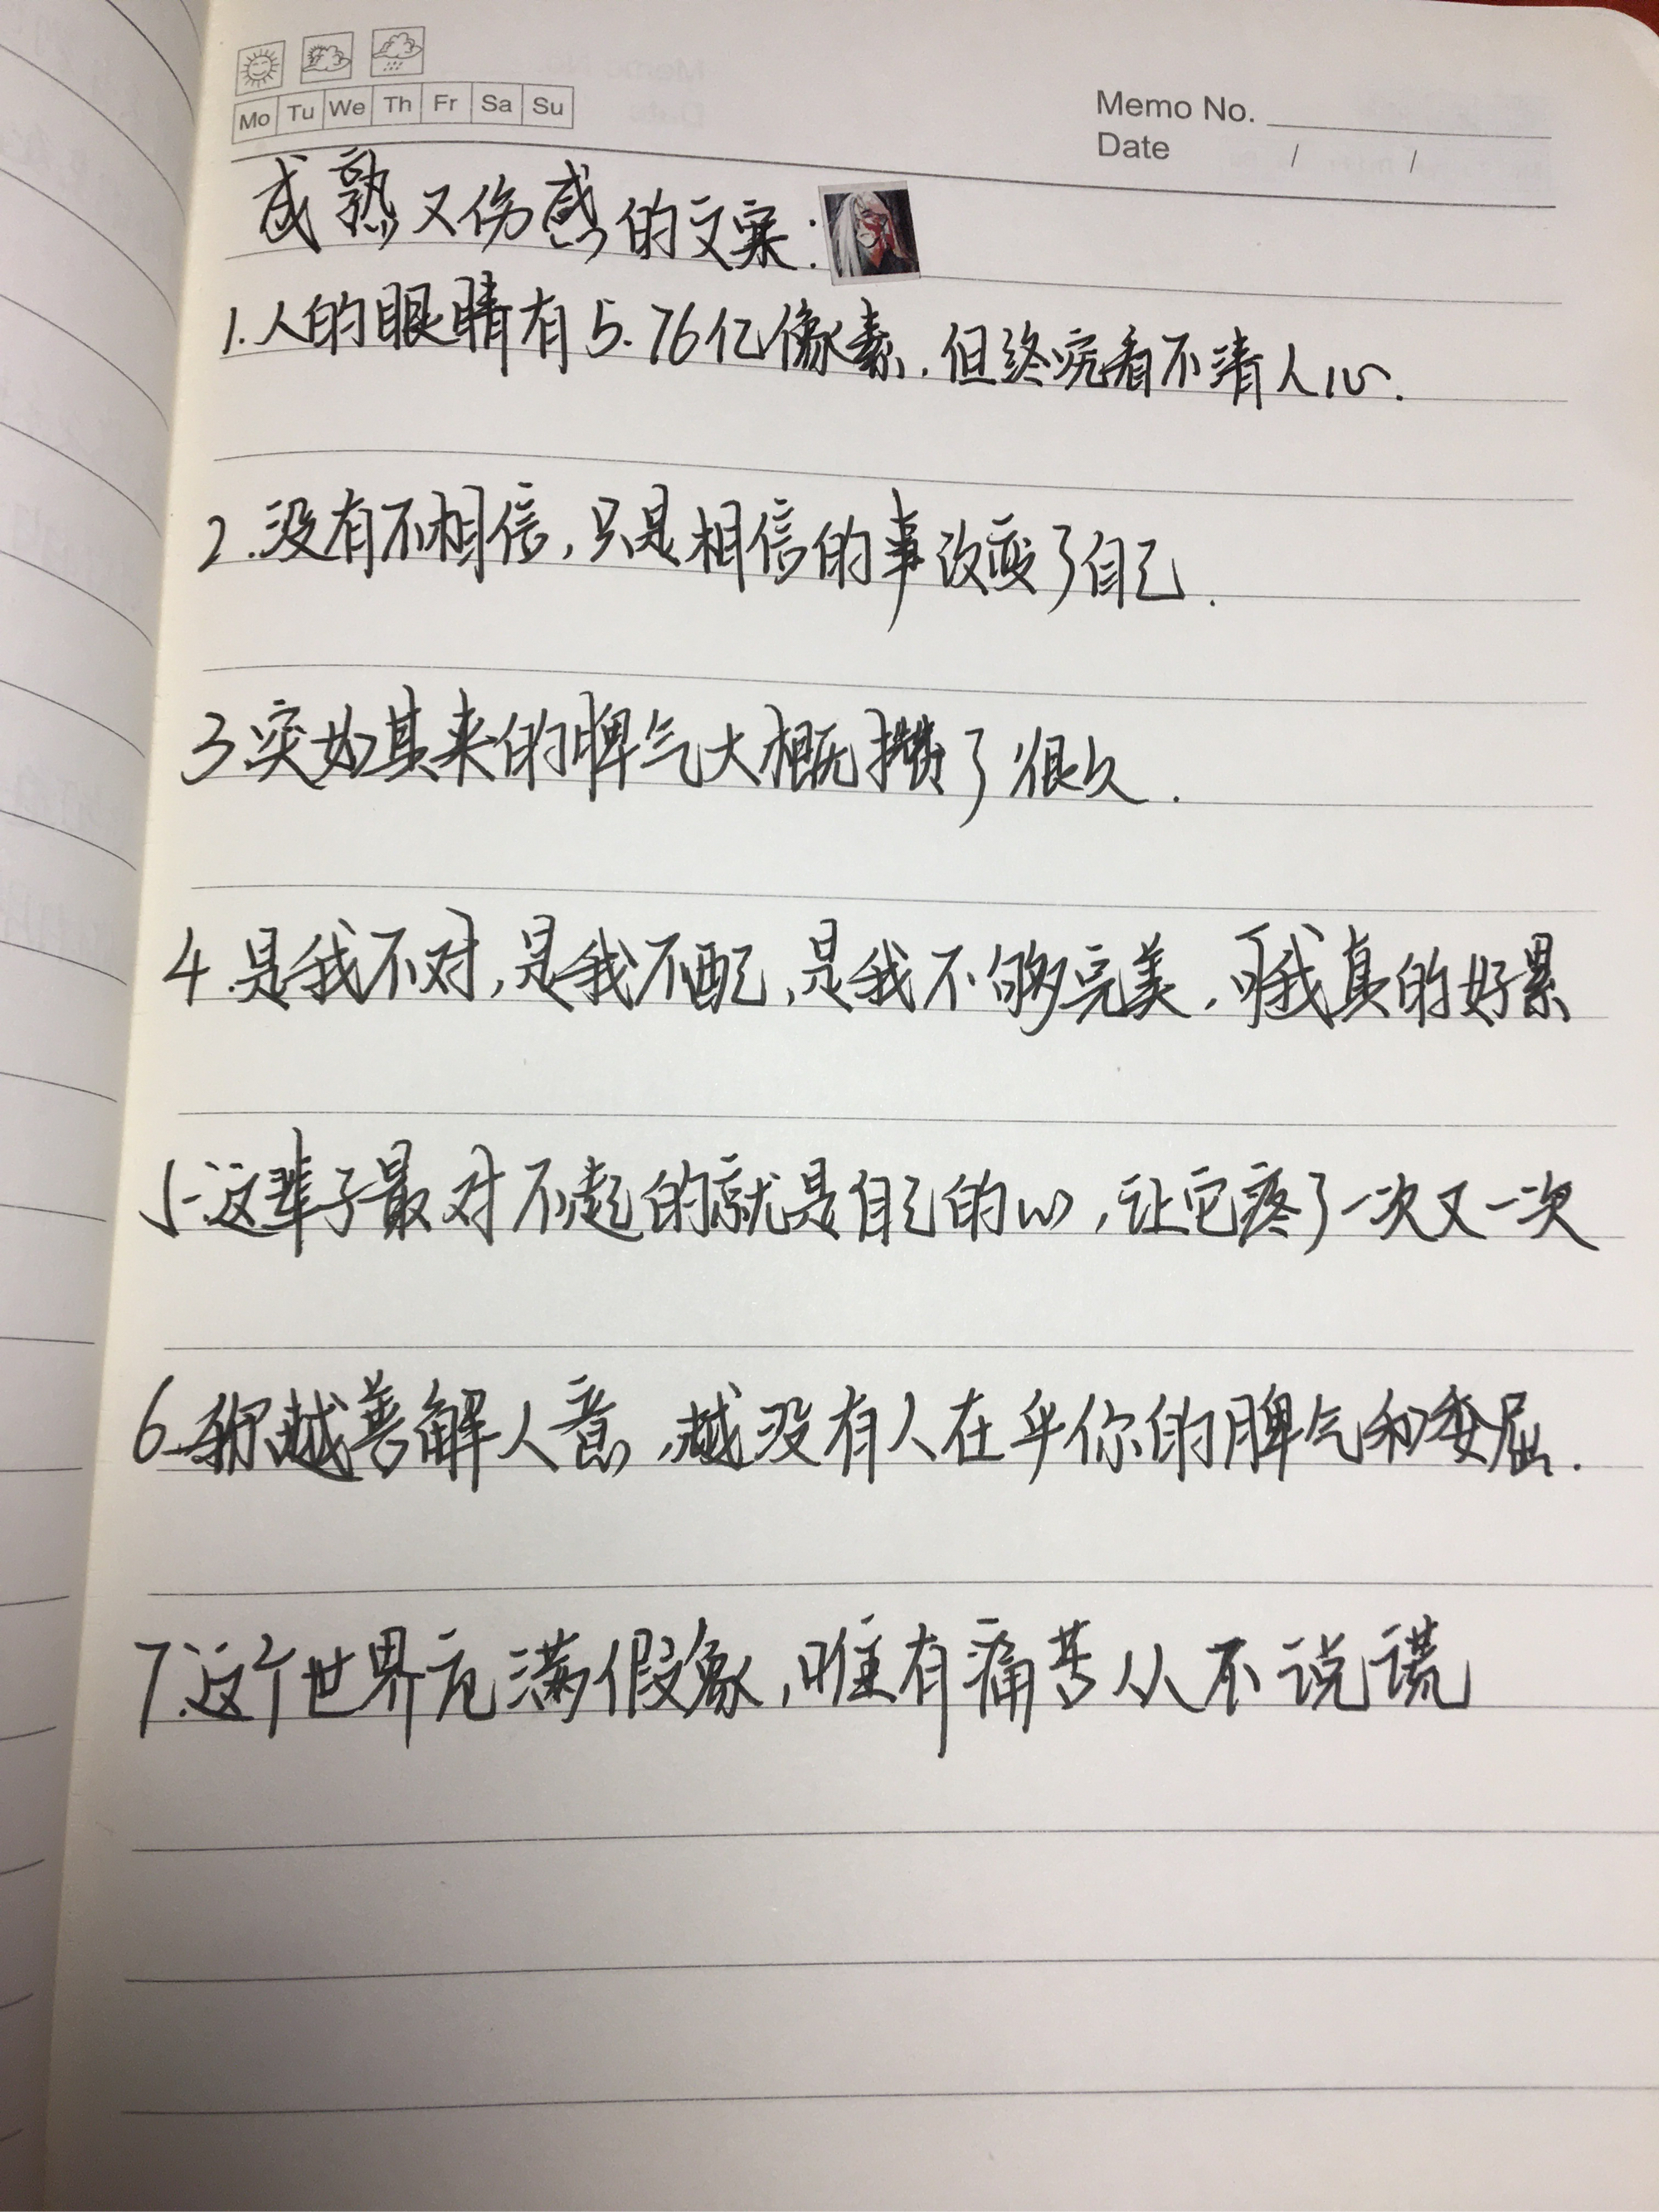 Mo Tu We Th Fr Sa Su
Memo No.
Date / /
成熟又伤感的文案:
1.人的眼睛有5.76亿像素.但终究看不清人心.
2.没有不相信,只是相信的事改变了自己.
3.突如其来的脾气大概攒了很久.
4.是我不对,是我不配,是我不够完美.可我真的好累
5.这辈子最对不起的就是自己的心,让它疼了一次又一次
6.你越善解人意,越没有人在乎你的脾气和委屈.
7.这个世界充满假象,唯有痛苦从不说谎